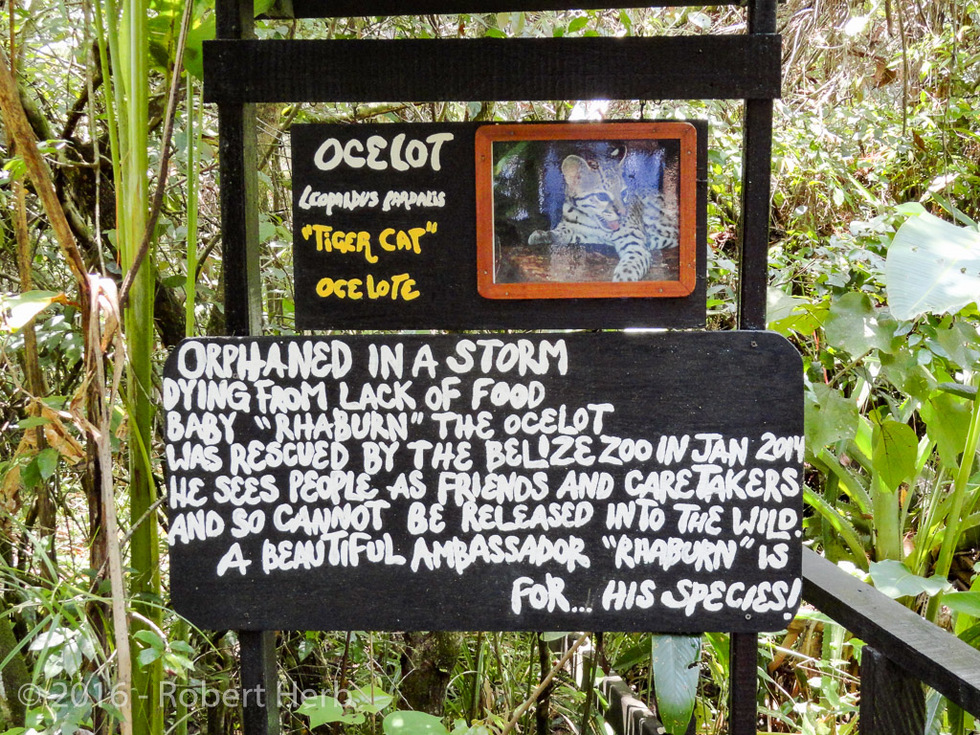 OCELOT
LEOPARDUS PARDALIS
"TIGER CAT"
OCELOTE
ORPHANED IN A STORM
DYING FROM LACK OF FOOD
BABY "RHABURN" THE OCELOT
WAS RESCUED BY THE BELIZE ZOO IN JAN 2014
HE SEES PEOPLE AS FRIENDS AND CARETAKERS
AND SO CANNOT BE RELEASED INTO THE WILD.
A BEAUTIFUL AMBASSADOR "RHABURN" IS
FOR... HIS SPECIES!
© 2016 - Robert Herb